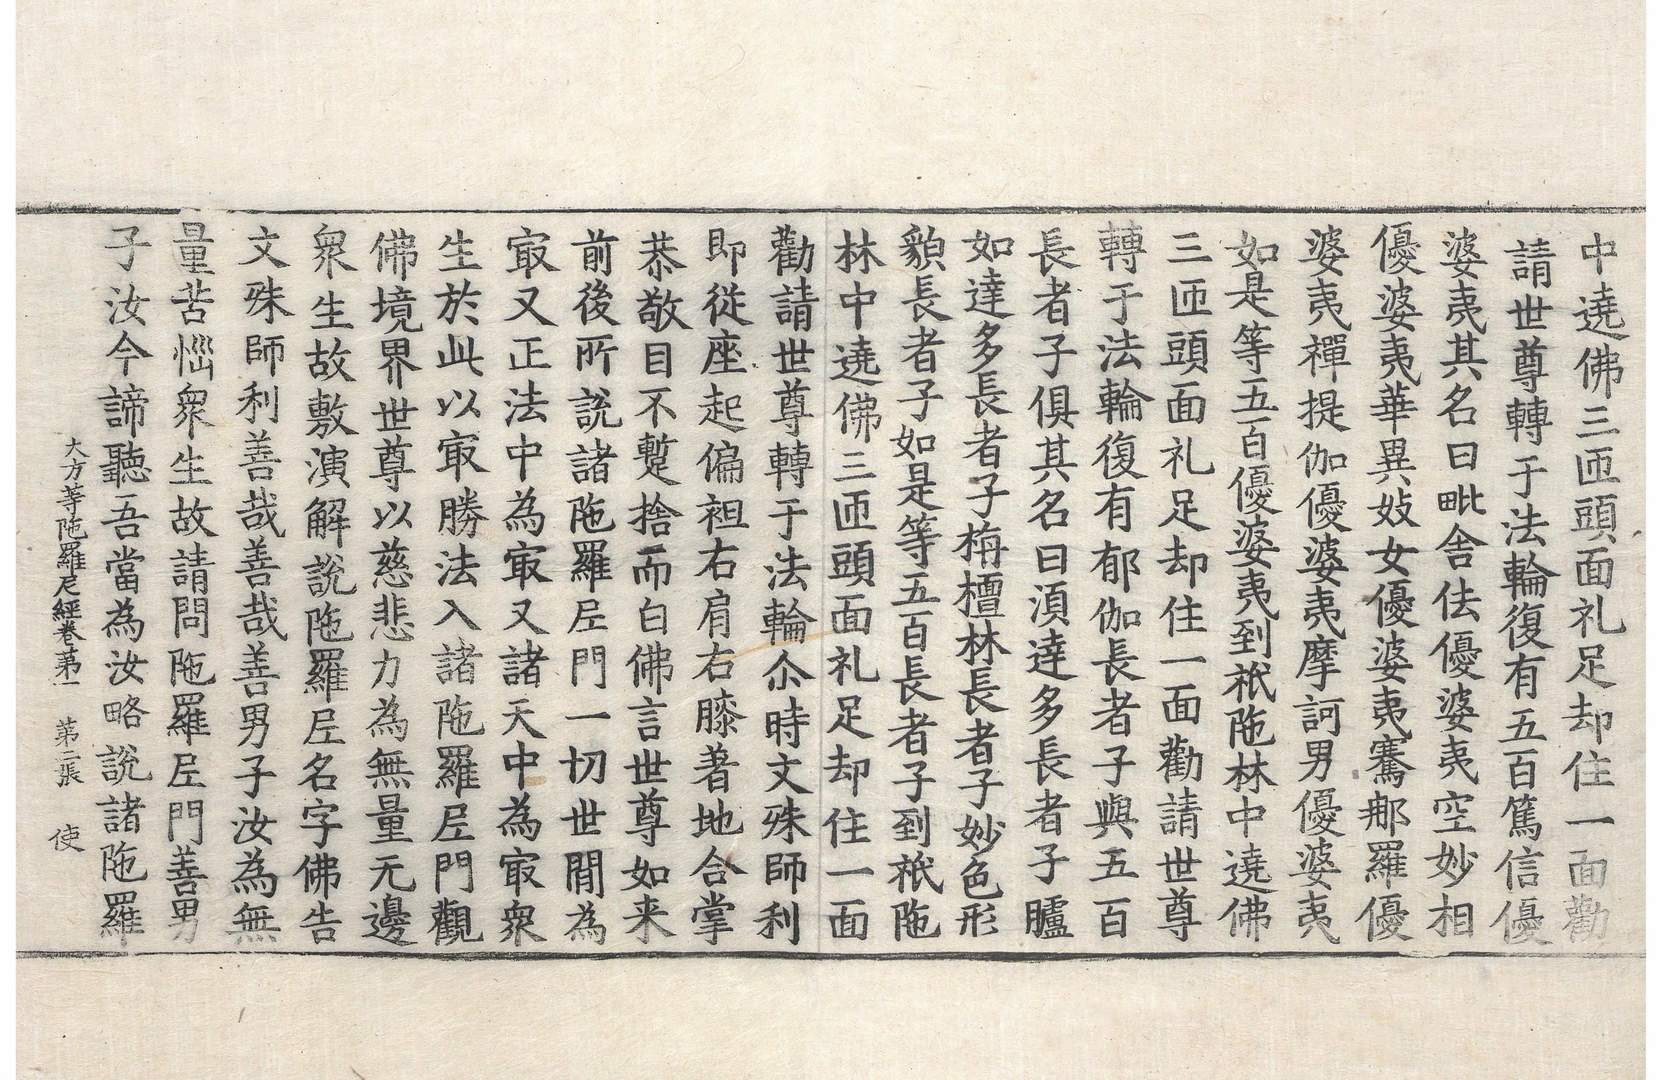 中遶佛三匝頭面礼足却住一面勸
請世尊轉于法輪復有五百篤信優
婆夷其名曰毗舍佉優婆夷空妙相
優婆夷華異妓女優婆夷騫那羅優
婆夷禪提伽優婆夷摩訶男優婆夷
如是等五百優婆夷到祇陁林中遶佛
三匝頭面礼足却住一面勸請世尊
轉于法輪復有郁伽長者子與五百
長者子俱其名曰湏達多長者子臚
如達多長者子栴檀林長者子妙色形
貌長者子如是等五百長者子到祇陁
林中遶佛三匝頭面礼足却住一面
勸請世尊轉于法輪尒時文殊師利
即從座起偏袒右肩右膝著地合掌
恭敬目不蹔捨而白佛言世尊如来
前後所說諸陁羅尼門一切世間為
㝡又正法中為㝡又諸天中為㝡衆
生於此以㝡勝法入諸陁羅尼門觀
佛境界世尊以慈悲力為無量无邊
衆生故敷演解說陁羅尼名字佛告
文殊師利善哉善哉善男子汝為無
量苦惱衆生故請問陁羅尼門善男
子汝今諦聽吾當為汝略說諸陁羅
大方等陁羅尼經卷第一 第二張 使